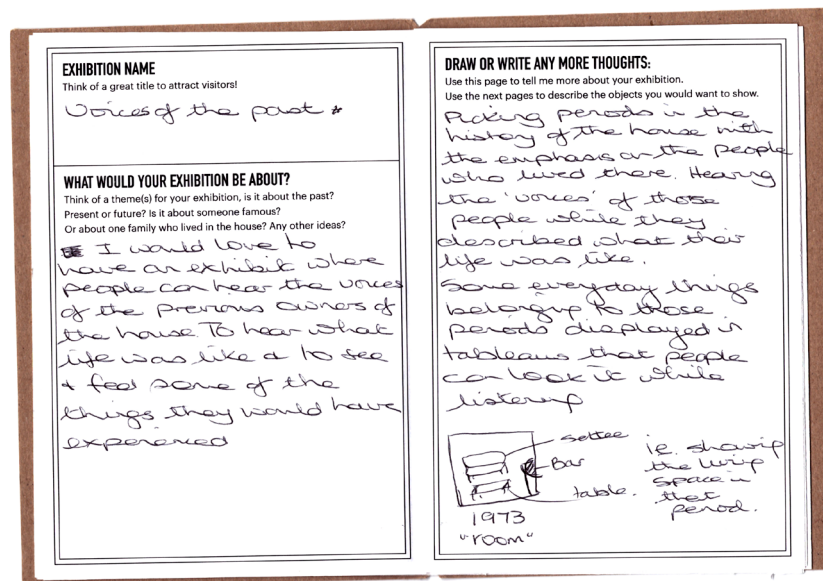 EXHIBITION NAME
Think of a great title to attract visitors!
Voices of the past *
WHAT WOULD YOUR EXHIBITION BE ABOUT?
Think of a theme(s) for your exhibition, is it about the past?
Present or future? Is it about someone famous?
Or about one family who lived in the house? Any other ideas?
I would love to
have an exhibit where
people can hear the voices
of the previous owners of
the house. To hear what
life was like & to see
+ feel some of the
things they would have
experienced
DRAW OR WRITE ANY MORE THOUGHTS:
Use this page to tell me more about your exhibition.
Use the next pages to describe the objects you would want to show.
Picking periods in the
history of the house with
the emphasis on the people
who lived there. Hearing
the 'voices' of those
people while they
described what their
life was like.
Some everyday things
belonging to those
periods displayed in
tableaus that people
can look at while
listening
settee
Bar
table.
1973
"room"
ie. showing
the living
space in
that
period.